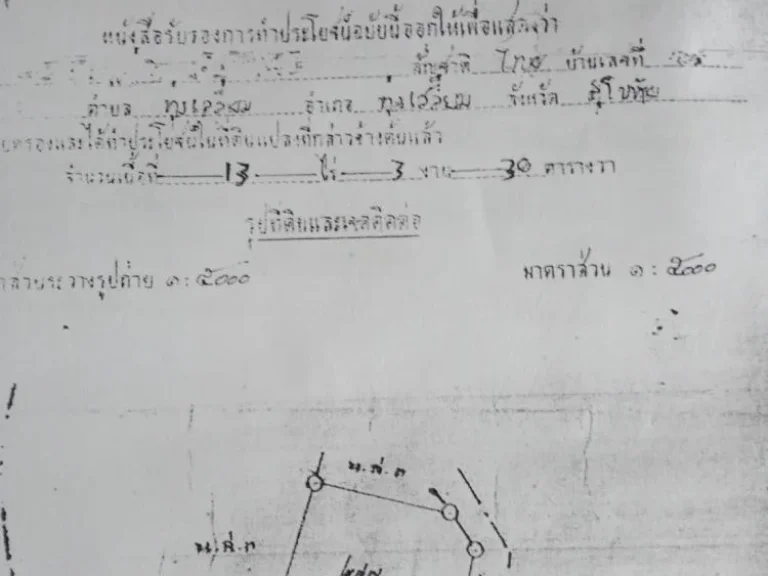 หนังสือรับรองการทำประโยชน์ฉบับนี้ออกให้เพื่อแสดงว่า
สัญชาติ ไทย บ้านเลขที่
ตำบล ทุ่งเสลี่ยม อำเภอ ทุ่งเสลี่ยม จังหวัด สุโขทัย
ครองและได้ทำประโยชน์ในที่ดินแปลงที่กล่าวข้างต้นแล้ว
จำนวนเนื้อที่ 13 ไร่ 3 งาน 30 ตารางวา
รูปที่ดินและเขตติดต่อ
ส่วนระวางรูปถ่าย ๑ : ๕๐๐๐ มาตราส่วน ๑ : ๕๐๐๐
น.ส.๓
น.ส.๓